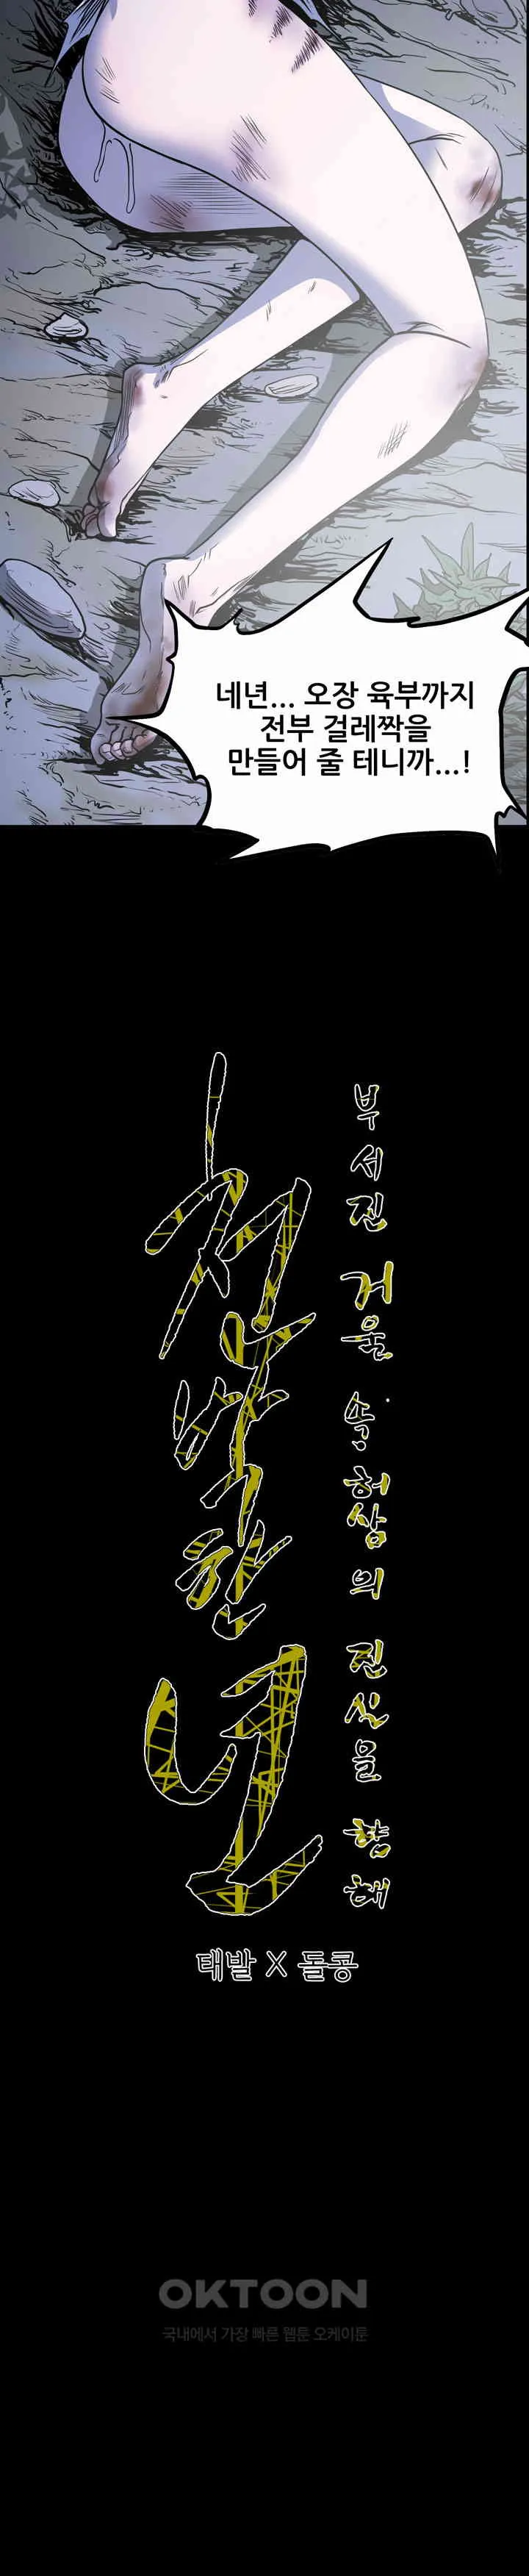 네년... 오장 육부까지
전부 걸레짝을
만들어 줄 테니까...!
부서진 거울 속, 허상의 진실을 향해
천박한년
태발 X 돌콩
OKTOON
국내에서 가장 빠른 웹툰 오케이툰